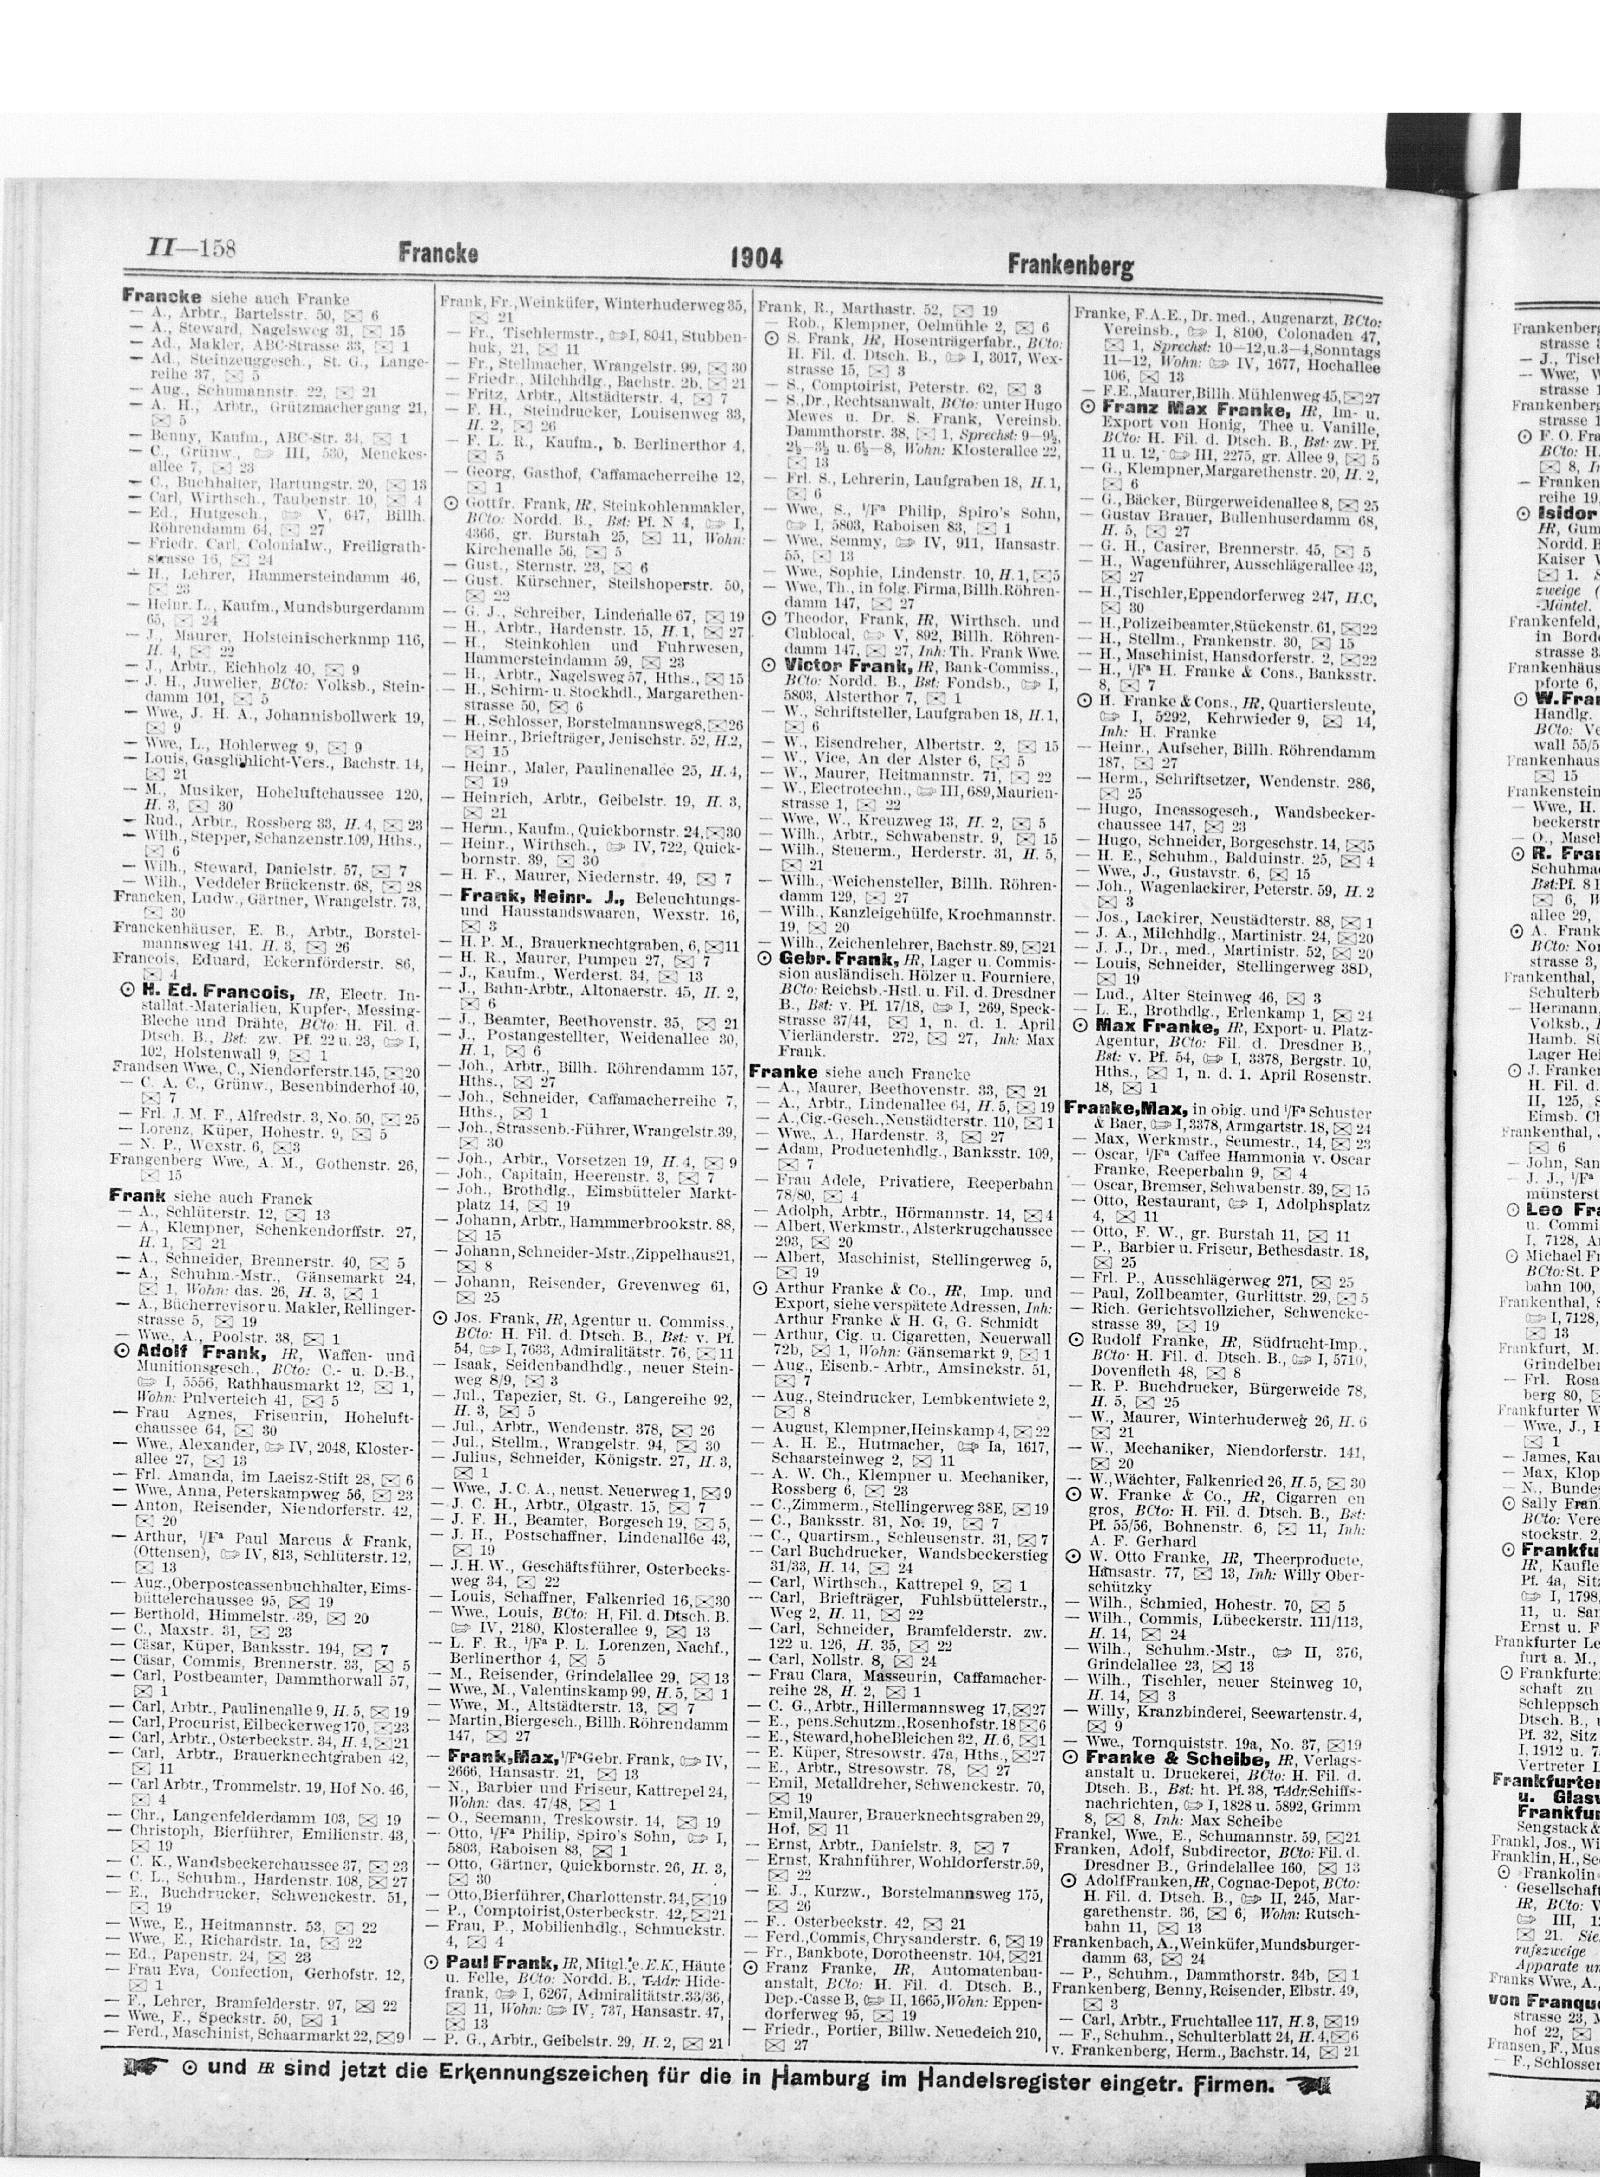 II—158
Francke
1904
Frankenberg
Francke siehe auch Franke
— A., Arbtr., Bartelsstr. 50, ✉ 6
— A., Steward, Nagelsweg 31, ✉ 15
— Ad., Makler, ABC-Strasse 33, ✉ 1
— Ad., Steinzeuggesch., St. G., Lange-
reihe 37, ✉ 5
— Aug., Schumannstr. 22, ✉ 21
— A. H., Arbtr., Grützmachergang 21,
✉ 5
— Benny, Kaufm., ABC-Str. 34, ✉ 1
— C., Grünw., III, 530, Menckes-
allee 7, ✉ 23
— C., Buchhalter, Hartungstr. 20, ✉ 13
— Carl, Wirthsch., Taubenstr. 10, ✉ 4
— Ed., Hutgesch., V, 647, Billh.
Röhrendamm 64, ✉ 27
— Friedr. Carl, Colonialw., Freiligrath-
strasse 16, ✉ 24
— H., Lehrer, Hammersteindamm 46,
✉ 23
— Heinr. L., Kaufm., Mundsburgerdamm
65, ✉ 24
— J., Maurer, Holsteinischerkamp 116,
H. 4, ✉ 22
— J., Arbtr., Eichholz 40, ✉ 9
— J. H., Juwelier, BCto: Volksb., Stein-
damm 101, ✉ 5
— Wwe., J. H. A., Johannisbollwerk 19,
✉ 9
— Wwe., L., Hohlerweg 9, ✉ 9
— Louis, Gasglühlicht-Vers., Bachstr. 14,
✉ 21
— M., Musiker, Hoheluftchaussee 120,
H. 3, ✉ 30
— Rud., Arbtr., Rossberg 33, H. 4, ✉ 23
— Wilh., Stepper, Schanzenstr. 109, Hths.,
✉ 6
— Wilh., Steward, Danielstr. 57, ✉ 7
— Wilh., Veddeler Brückenstr. 68, ✉ 28
Francken, Ludw., Gärtner, Wrangelstr. 73,
✉ 30
Franckenhäuser, E. B., Arbtr., Borstel-
mannsweg 141. H. 3, ✉ 26
Francois, Eduard, Eckernförderstr. 86,
✉ 4
⊙ H. Ed. Francois, HR, Electr. In-
stallat.-Materialien, Kupfer-, Messing-
Bleche und Drähte, BCto: H. Fil. d.
Dtsch. B., Bst: zw. Pf. 22 u. 23, I,
102, Holstenwall 9, ✉ 1
Frandsen Wwe., C., Niendorferstr. 145, ✉ 20
— C. A. C., Grünw., Besenbinderhof 40,
✉ 7
— Frl. J. M. F., Alfredstr. 3, No. 50, ✉ 25
— Lorenz, Küper, Hohestr. 9, ✉ 5
— N. P., Wexstr. 6, ✉ 3
Frangenberg Wwe., A. M., Gothenstr. 26,
✉ 15
Frank siehe auch Franck
— A., Schlüterstr. 12, ✉ 13
— A., Klempner, Schenkendorffstr. 27,
H. 1, ✉ 21
— A., Schneider, Brennerstr. 40, ✉ 5
— A., Schuhm.-Mstr., Gänsemarkt 24,
✉ 1, Wohn: das. 26, H. 3, ✉ 1
— A., Bücherrevisor u. Makler, Rellinger-
strasse 5, ✉ 19
— Wwe., A., Poolstr. 38, ✉ 1
⊙ Adolf Frank, HR, Waffen- und
Munitionsgesch., BCto: C.- u. D.-B.,
I, 5556, Rathhausmarkt 12, ✉ 1,
Wohn: Pulverteich 41, ✉ 5
— Frau Agnes, Friseurin, Hoheluft-
chaussee 64, ✉ 30
— Wwe., Alexander, IV, 2048, Kloster-
allee 27, ✉ 13
— Frl. Amanda, im Laeisz-Stift 28, ✉ 6
— Wwe., Anna, Peterskampweg 56, ✉ 23
— Anton, Reisender, Niendorferstr. 42,
✉ 20
— Arthur, i/Fa Paul Marcus & Frank,
(Ottensen), IV, 813, Schlüterstr. 12,
✉ 13
— Aug., Oberpostcassenbuchhalter, Eims-
büttelerchaussee 95, ✉ 19
— Berthold, Himmelstr. 39, ✉ 20
— C., Maxstr. 31, ✉ 23
— Cäsar, Küper, Banksstr. 194, ✉ 7
— Cäsar, Commis, Brennerstr. 33, ✉ 5
— Carl, Postbeamter, Dammthorwall 57,
✉ 1
— Carl, Arbtr., Paulinenalle 9, H. 5, ✉ 19
— Carl, Procurist, Eilbeckerweg 170, ✉ 23
— Carl, Arbtr., Osterbeckstr. 34, H. 4, ✉ 21
— Carl, Arbtr., Brauerknechtgraben 42,
✉ 11
— Carl Arbtr., Trommelstr. 19, Hof No. 46,
✉ 4
— Chr., Langenfelderdamm 103, ✉ 19
— Christoph, Bierführer, Emilienstr. 43,
✉ 19
— C. K., Wandsbeckerchaussee 37, ✉ 23
— C. L., Schuhm., Hardenstr. 108, ✉ 27
— E., Buchdrucker, Schwenckestr. 51,
✉ 19
— Wwe., E., Heitmannstr. 53, ✉ 22
— Wwe., E., Richardstr. 1a, ✉ 22
— Ed., Papenstr. 24, ✉ 23
— Frau Eva, Confection, Gerhofstr. 12,
✉ 1
— F., Lehrer, Bramfelderstr. 97, ✉ 22
— Wwe., F., Speckstr. 50, ✉ 1
— Ferd., Maschinist, Schaarmarkt 22, ✉ 9
Frank, Fr., Weinküfer, Winterhuderweg 35,
✉ 21
— Fr., Tischlermstr., I, 8041, Stubben-
huk, 21, ✉ 11
— Fr., Stellmacher, Wrangelstr. 99, ✉ 30
— Friedr., Milchhdlg., Bachstr. 2b, ✉ 21
— Fritz, Arbtr., Altstädterstr. 4, ✉ 7
— F. H., Steindrucker, Louisenweg 33,
H. 2, ✉ 26
— F. L. R., Kaufm., b. Berlinerthor 4,
✉ 5
— Georg, Gasthof, Caffamacherreihe 12,
✉ 1
⊙ Gottfr. Frank, HR, Steinkohlenmakler,
BCto: Nordd. B., Bst: Pf. N 4, I,
4366, gr. Burstah 25, ✉ 11, Wohn:
Kirchenalle 56, ✉ 5
— Gust., Sternstr. 23, ✉ 6
— Gust. Kürschner, Steilshoperstr. 50,
✉ 22
— G. J., Schreiber, Lindenalle 67, ✉ 19
— H., Arbtr., Hardenstr. 15, H. 1, ✉ 27
— H., Steinkohlen und Fuhrwesen,
Hammersteindamm 59, ✉ 23
— H., Arbtr., Nagelsweg 57, Hths., ✉ 15
— H., Schirm- u. Stockhdl., Margarethen-
strasse 50, ✉ 6
— H., Schlosser, Borstelmannsweg 8, ✉ 26
— Heinr., Briefträger, Jenischstr. 52, H. 2,
✉ 15
— Heinr., Maler, Paulinenallee 25, H. 4,
✉ 19
— Heinrich, Arbtr., Geibelstr. 19, H. 3,
✉ 21
— Herm., Kaufm., Quickbornstr. 24, ✉ 30
— Heinr., Wirthsch., IV, 722, Quick-
bornstr. 39, ✉ 30
— H. F., Maurer, Niedernstr. 49, ✉ 7
— Frank, Heinr. J., Beleuchtungs-
und Hausstandswaaren, Wexstr. 16,
✉ 3
— H. P. M., Brauerknechtgraben, 6, ✉ 11
— H. R., Maurer, Pumpen 27, ✉ 7
— J., Kaufm., Werderst. 34, ✉ 13
— J., Bahn-Arbtr., Altonaerstr. 45, H. 2,
✉ 6
— J., Beamter, Beethovenstr. 35, ✉ 21
— J., Postangestellter, Weidenallee 30,
H. 1, ✉ 6
— Joh., Arbtr., Billh. Röhrendamm 157,
Hths., ✉ 27
— Joh., Schneider, Caffamacherreihe 7,
Hths., ✉ 1
— Joh., Strassenb.-Führer, Wrangelstr. 39,
✉ 30
— Joh., Arbtr., Vorsetzen 19, H. 4, ✉ 9
— Joh., Capitain, Heerenstr. 3, ✉ 7
— Joh., Brothdlg., Eimsbütteler Markt-
platz 14, ✉ 19
— Johann, Arbtr., Hammmerbrookstr. 88,
✉ 15
— Johann, Schneider-Mstr., Zippelhaus 21,
✉ 8
— Johann, Reisender, Grevenweg 61,
✉ 25
⊙ Jos. Frank, HR, Agentur u. Commiss.,
BCto: H. Fil. d. Dtsch. B., Bst: v. Pf.
54, I, 7633, Admiralitätstr. 76, ✉ 11
— Isaak, Seidenbandhdlg., neuer Stein-
weg 8/9, ✉ 3
— Jul., Tapezier, St. G., Langereihe 92,
H. 3, ✉ 5
— Jul., Arbtr., Wendenstr. 378, ✉ 26
— Jul., Stellm., Wrangelstr. 94, ✉ 30
— Julius, Schneider, Königstr. 27, H. 3,
✉ 1
— Wwe., J. C. A., neust. Neuerweg 1, ✉ 9
— J. C. H., Arbtr., Olgastr. 15, ✉ 7
— J. F. H., Beamter, Borgesch 19, ✉ 5,
— J. H., Postschaffner, Lindenallee 43,
✉ 19
— J. H. W., Geschäftsführer, Osterbecks-
weg 34, ✉ 22
— Louis, Schaffner, Falkenried 16, ✉ 30
— Wwe., Louis, BCto: H. Fil. d. Dtsch. B.
IV, 2180, Klosterallee 9, ✉ 13
— L. F. R., i/Fa P. L. Lorenzen, Nachf.,
Berlinerthor 4, ✉ 5
— M., Reisender, Grindelallee 29, ✉ 13
— Wwe., M., Valentinskamp 99, H. 5, ✉ 1
— Wwe., M., Altstädterstr. 13, ✉ 7
— Martin, Biergesch., Billh. Röhrendamm
147, ✉ 27
— Frank, Max, i/Fa Gebr. Frank, IV,
2666, Hansastr. 21, ✉ 13
— N., Barbier und Friseur, Kattrepel 24,
Wohn: das. 47/48, ✉ 1
— O., Seemann, Treskowstr. 14, ✉ 19
— Otto, i/Fa Philip, Spiro's Sohn, I,
5803, Raboisen 83, ✉ 1
— Otto, Gärtner, Quickbornstr. 26, H. 3,
✉ 30
— Otto, Bierführer, Charlottenstr. 34, ✉ 19
— P., Comptoirist, Osterbeckstr. 42, ✉ 21
— Frau, P., Mobilienhdlg., Schmuckstr.
4, ✉ 4
⊙ Paul Frank, HR, Mitgl. e. E. K., Häute
u. Felle, BCto: Nordd. B., T-Adr: Hide-
frank, I, 6267, Admiralitätstr. 33/36,
✉ 11, Wohn: IV, 737, Hansastr. 47,
✉ 13
— P. G., Arbtr., Geibelstr. 29, H. 2, ✉ 21
Frank, R., Marthastr. 52, ✉ 19
— Rob., Klempner, Oelmühle 2, ✉ 6
⊙ S. Frank, HR, Hosenträgerfabr., BCto:
H. Fil. d. Dtsch. B., I, 3017, Wex-
strasse 15, ✉ 3
— S., Comptoirist, Peterstr. 62, ✉ 3
— S., Dr., Rechtsanwalt, BCto: unter Hugo
Mewes u. Dr. S. Frank, Vereinsb.
Dammthorstr. 38, ✉ 1, Sprechst: 9—9½,
2½—3½ u. 6½—8, Wohn: Klosterallee 22,
✉ 13
— Frl. S., Lehrerin, Laufgraben 18, H. 1,
✉ 6
— Wwe., S., i/Fa Philip, Spiro's Sohn,
I, 5803, Raboisen 83, ✉ 1
— Wwe., Semmy, IV, 911, Hansastr.
55, ✉ 13
— Wwe., Sophie, Lindenstr. 10, H. 1, ✉ 5
— Wwe., Th., in folg. Firma, Billh. Röhren-
damm 147, ✉ 27
⊙ Theodor, Frank, HR, Wirthsch. und
Clublocal, V, 892, Billh. Röhren-
damm 147, ✉ 27, Inh: Th. Frank Wwe.
⊙ Victor Frank, HR, Bank-Commiss.,
BCto: Nordd. B., Bst: Fondsb., I,
5803, Alsterthor 7, ✉ 1
— W., Schriftsteller, Laufgraben 18, H. 1,
✉ 6
— W., Eisendreher, Albertstr. 2, ✉ 15
— W., Vice, An der Alster 6, ✉ 5
— W., Maurer, Heitmannstr. 71, ✉ 22
— W., Electrotechn., III, 689, Maurien-
strasse 1, ✉ 22
— Wwe., W., Kreuzweg 13, H. 2, ✉ 5
— Wilh., Arbtr., Schwabenstr. 9, ✉ 15
— Wilh., Steuerm., Herderstr. 31, H. 5,
✉ 21
— Wilh., Weichensteller, Billh. Röhren-
damm 129, ✉ 27
— Wilh., Kanzleigehülfe, Krochmannstr.
19, ✉ 20
— Wilh., Zeichenlehrer, Bachstr. 89, ✉ 21
⊙ Gebr. Frank, HR, Lager u. Commis-
sion ausländisch. Hölzer u. Fourniere,
BCto: Reichsb.-Hstl. u. Fil. d. Dresdner
B., Bst: v. Pf. 17/18, I, 269, Speck-
strasse 37/44, ✉ 1, n. d. 1. April
Vierländerstr. 272, ✉ 27, Inh: Max
Frank.
Franke siehe auch Francke
— A., Maurer, Beethovenstr. 33, ✉ 21
— A., Arbtr., Lindenallee 64, H. 5, ✉ 19
— A., Cig.-Gesch., Neustädterstr. 110, ✉ 1
— Wwe., A., Hardenstr. 3, ✉ 27
— Adam, Productenhdlg., Banksstr. 109,
✉ 7
— Frau Adele, Privatiere, Reeperbahn
78/80, ✉ 4
— Adolph, Arbtr., Hörmannstr. 14, ✉ 4
— Albert, Werkmstr., Alsterkrugchaussee
293, ✉ 20
— Albert, Maschinist, Stellingerweg 5,
✉ 19
⊙ Arthur Franke & Co., HR, Imp. und
Export, siehe verspätete Adressen, Inh:
Arthur Franke & H. G. G. Schmidt
— Arthur, Cig. u. Cigaretten, Neuerwall
72b, ✉ 1, Wohn: Gänsemarkt 9, ✉ 1
— Aug., Eisenb.- Arbtr., Amsinckstr. 51,
✉ 7
— Aug., Steindrucker, Lembkentwiete 2,
✉ 8
— August, Klempner, Heinskamp 4, ✉ 22
— A. H. E., Hutmacher, Ia, 1617,
Schaarsteinweg 2, ✉ 11
— A. W. Ch., Klempner u. Mechaniker,
Rossberg 6, ✉ 23
— C., Zimmerm., Stellingerweg 38E, ✉ 19
— C., Banksstr. 31, No. 19, ✉ 7
— C., Quartirsm., Schleusenstr. 31, ✉ 7
— Carl Buchdrucker, Wandsbeckerstieg
31/33, H. 14, ✉ 24
— Carl, Wirthsch., Kattrepel 9, ✉ 1
— Carl, Briefträger, Fuhlsbüttelerstr.,
Weg 2, H. 11, ✉ 22
— Carl, Schneider, Bramfelderstr. zw.
122 u. 126, H. 35, ✉ 22
— Carl, Nollstr. 8, ✉ 24
— Frau Clara, Masseurin, Caffamacher-
reihe 28, H. 2, ✉ 1
— C. G., Arbtr., Hillermannsweg 17, ✉ 27
— E., pens. Schutzm., Rosenhofstr. 18 ✉ 6
— E., Steward, hohe Bleichen 32, H. 6, ✉ 1
— E. Küper, Stresowstr. 47a, Hths., ✉ 27
— E., Arbtr., Stresowstr. 78, ✉ 27
— Emil, Metalldreher, Schwenckestr. 70,
✉ 19
— Emil, Maurer, Brauerknechtsgraben 29,
Hof, ✉ 11
— Ernst, Arbtr., Danielstr. 3, ✉ 7
— Ernst, Krahnführer, Wohldorferstr. 59,
✉ 22
— E. J., Kurzw., Borstelmannsweg 175,
✉ 26
— F., Osterbeckstr. 42, ✉ 21
— Ferd., Commis, Chrysanderstr. 6, ✉ 19
— Fr., Bankbote, Dorotheenstr. 104, ✉ 21
⊙ Franz Franke, HR, Automatenbau-
anstalt, BCto: H. Fil. d. Dtsch. B.,
Dep.-Casse B, II, 1665, Wohn: Eppen-
dorferweg 95, ✉ 19
— Friedr., Portier, Billw. Neuedeich 210,
✉ 27
Franke, F. A. E., Dr. med., Augenarzt, BCto:
Vereinsb., I, 8100, Colonaden 47,
✉ 1, Sprechst: 10—12, u. 3—4, Sonntags
11—12, Wohn: IV, 1677, Hochallee
106, ✉ 13
— F. E., Maurer, Billh. Mühlenweg 45, ✉ 27
⊙ Franz Max Franke, HR, Im- u.
Export von Honig, Thee u. Vanille,
BCto: H. Fil. d. Dtsch. B., Bst: zw. Pf.
11 u. 12, III, 2275, gr. Allee 9, ✉ 5
— G., Klempner, Margarethenstr. 20, H. 2,
✉ 6
— G., Bäcker, Bürgerweidenallee 8, ✉ 25
— Gustav Brauer, Bullenhuserdamm 68,
H. 5, ✉ 27
— G. H., Casirer, Brennerstr. 45, ✉ 5
— H., Wagenführer, Ausschlägerallee 43,
✉ 27
— H., Tischler, Eppendorferweg 247, H. C,
✉ 30
— H., Polizeibeamter, Stückenstr. 61, ✉ 22
— H., Stellm., Frankenstr. 30, ✉ 15
— H., Maschinist, Hansdorferstr. 2, ✉ 22
— H., i/Fa H. Franke & Cons., Banksstr.
8, ✉ 7
⊙ H. Franke & Cons., HR, Quartiersleute,
I, 5292, Kehrwieder 9, ✉ 14,
Inh: H. Franke
— Heinr., Aufscher, Billh. Röhrendamm
187, ✉ 27
— Herm., Schriftsetzer, Wendenstr. 286,
✉ 25
— Hugo, Incassogesch., Wandsbecker-
chaussee 147, ✉ 23
— Hugo, Schneider, Borgeschstr. 14, ✉ 5
— H. E., Schuhm., Balduinstr. 25, ✉ 4
— Wwe., J., Gustavstr. 6, ✉ 15
— Joh., Wagenlackirer, Peterstr. 59, H. 2
✉ 3
— Jos., Lackirer, Neustädterstr. 88, ✉ 1
— J. A., Milchhdlg., Martinistr. 24, ✉ 20
— J. J., Dr., med., Martinistr. 52, ✉ 20
— Louis, Schneider, Stellingerweg 38D,
✉ 19
— Lud., Alter Steinweg 46, ✉ 3
— L. E., Brothdlg., Erlenkamp 1, ✉ 24
⊙ Max Franke, HR, Export- u. Platz-
Agentur, BCto: Fil. d. Dresdner B.,
Bst: v. Pf. 54, I, 3378, Bergstr. 10,
Hths., ✉ 1, n. d. 1. April Rosenstr.
18, ✉ 1
Franke, Max, in obig. und i/Fa Schuster
& Baer, I, 3378, Armgartstr. 18, ✉ 24
— Max, Werkmstr., Seumestr., 14, ✉ 23
— Oscar, i/Fa Caffee Hammonia v. Oscar
Franke, Reeperbahn 9, ✉ 4
— Oscar, Bremser, Schwabenstr. 39, ✉ 15
— Otto, Restaurant, I, Adolphsplatz
4, ✉ 11
— Otto, F. W., gr. Burstah 11, ✉ 11
— P., Barbier u. Friseur, Bethesdastr. 18,
✉ 25
— Frl. P., Ausschlägerweg 271, ✉ 25
— Paul, Zollbeamter, Gurlittstr. 29, ✉ 5
— Rich. Gerichtsvollzieher, Schwencke-
strasse 39, ✉ 19
⊙ Rudolf Franke, HR, Südfrucht-Imp.,
BCto: H. Fil. d. Dtsch. B., I, 5710,
Dovenfleth 48, ✉ 8
— R. P. Buchdrucker, Bürgerweide 78,
H. 5, ✉ 25
— W., Maurer, Winterhuderweg 26, H. 6
✉ 21
— W., Mechaniker, Niendorferstr. 141,
✉ 20
— W., Wächter, Falkenried 26, H. 5, ✉ 30
⊙ W. Franke & Co., HR, Cigarren en
gros, BCto: H. Fil. d. Dtsch. B., Bst:
Pf. 55/56, Bohnenstr. 6, ✉ 11, Inh:
A. F. Gerhard
⊙ W. Otto Franke, HR, Theerproducte,
Hansastr. 77, ✉ 13, Inh: Willy Ober-
schützky
— Wilh., Schmied, Hohestr. 70, ✉ 5
— Wilh., Commis, Lübeckerstr. 111/113,
H. 14, ✉ 24
— Wilh., Schuhm.-Mstr., II, 376,
Grindelallee 23, ✉ 13
— Wilh., Tischler, neuer Steinweg 10,
H. 14, ✉ 3
— Willy, Kranzbinderei, Seewartenstr. 4,
✉ 9
— Wwe., Tornquiststr. 19a, No. 37, ✉ 19
⊙ Franke & Scheibe, HR, Verlags-
anstalt u. Druckerei, BCto: H. Fil. d.
Dtsch. B., Bst: ht. Pf. 38, T-Adr: Schiffs-
nachrichten, I, 1828 u. 5892, Grimm
8, ✉ 8, Inh: Max Scheibe
Frankel, Wwe., E., Schumannstr. 59, ✉ 21
Franken, Adolf, Subdirector, BCto: Fil. d.
Dresdner B., Grindelallee 160, ✉ 13
⊙ Adolf Franken, HR, Cognac-Depot, BCto:
H. Fil. d. Dtsch. B., II, 245, Mar-
garethenstr. 36, ✉ 6, Wohn: Rutsch-
bahn 11, ✉ 13
Frankenbach, A., Weinküfer, Mundsburger-
damm 63, ✉ 24
— P., Schuhm., Dammthorstr. 34b, ✉ 1
Frankenberg, Benny, Reisender, Elbstr. 49,
✉ 3
— Carl, Arbtr., Fruchtallee 117, H. 3, ✉ 19
— F., Schuhm., Schulterblatt 24, H. 4, ✉ 6
v. Frankenberg, Herm., Bachstr. 14, ✉ 21
⊙ und HR sind jetzt die Erkennungszeichen für die in Hamburg im Handelsregister eingetr. Firmen.
Frankenberg
strasse
— J., Tisch
— Wwe., W
strasse 1
Frankenberg
strasse
⊙ F. O. Fra
BCto: H.
✉ 8, In
— Franken
reihe 19,
⊙ Isidor
HR, Gum
Nordd. B
Kaiser W
✉ 1. S
zweige (
-Mäntel.
Frankenfeld,
in Borde
strasse 3
Frankenhäus
pforte 6,
⊙ W. Fran
Handlg.
BCto: Ve
wall 55/5
Frankenhaus
✉ 15
Frankenstein
— Wwe., H.
beckerstr
— O., Masch
⊙ R. Fran
Schuhma
Bst: Pf. 8 I
✉ 6, W
allee 29,
⊙ A. Frank
BCto: Nor
strasse 3,
Frankenthal,
Schulterb
— Hermann,
Volksb., I
Hamb. Sü
Lager Hei
⊙ J. Franken
H. Fil. d.
II, 125, S
Eimsb. Ch
Frankenthal, J
✉ 6
— John, San
— J. J., i/Fa
münsterst
⊙ Leo Fra
u. Commi
I, 7128, A
⊙ Michael Fr
BCto: St. P
bahn 100,
Frankenthal, S
I, 7128,
✉ 13
Frankfurt, M.
Grindelber
— Frl. Rosa
berg 80, ✉
Frankfurter W
— Wwe., J., I
✉ 1
— James, Kau
— Max, Klop
— N., Bundes
⊙ Sally Fran
BCto: Vere
stockstr. 2,
⊙ Frankfu
HR, Kaufle
Pf. 4a, Sitz
I, 1798,
11, u. San
Ernst u. F
Frankfurter Le
furt a. M.,
⊙ Frankfurte
schaft zu
Schleppsch
Dtsch. B., u
Pf. 32, Sitz
I, 1912 u. 7
Vertreter L
Frankfurter
u. Glasv
Frankfur
Sengstack &
Frankl, Jos., Wi
Franklin, H., Se
⊙ Frankolin
Gesellschaft
HR, BCto: V
III, 12
✉ 21. Sie
rufszweige
Apparate un
Franks Wwe., A.,
von Franque
strasse 23, M
hof 22, ✉
Fransen, F., Mus
— F., Schlosser